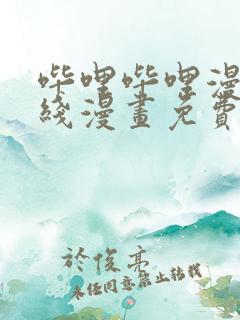 哔哩哔哩漫
线漫畫免費
於俊亮
未经同意禁止转载